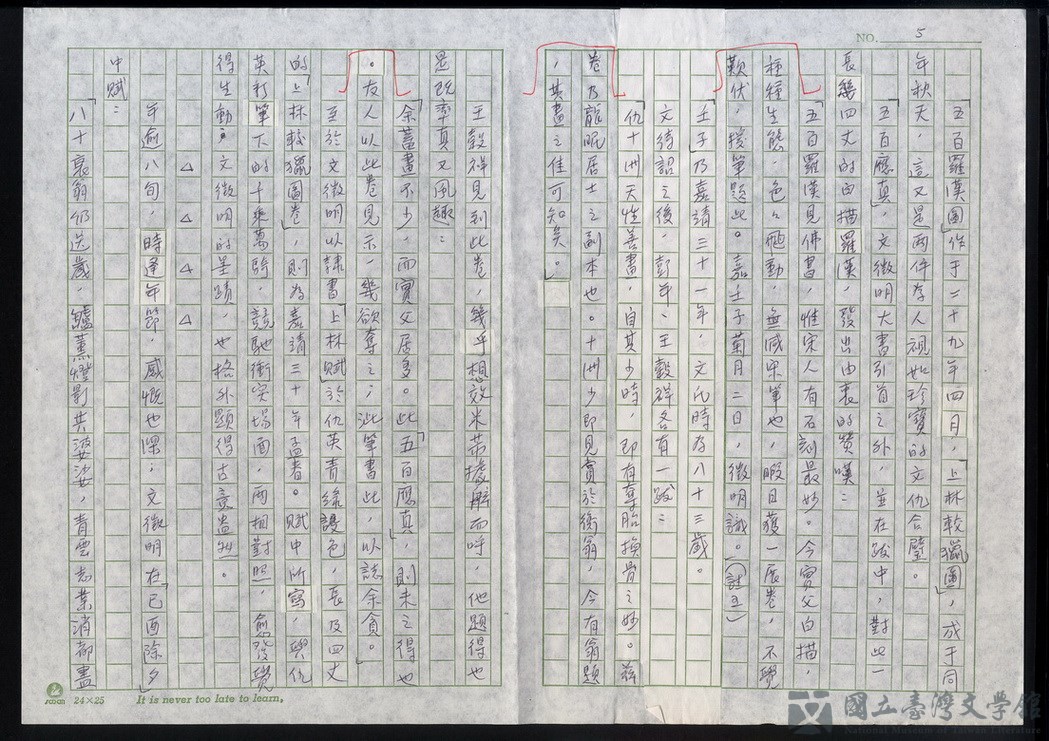 NO. 5
「五百羅漢圖」作于二十九年四月,「上林較獵圖」,成于同
年秋天,這又是兩件存人視如珍寶的文仇合璧。
「五百應真」,文徵明大書引首之外,並在跋中,對此一
長幾四丈的白描羅漢,發出由衷的贊嘆:
「五百羅漢見佛書,惟宋人有石刻最妙。今實父白描,
種種生態,色色飛動,無減宋筆也,暇日獲一展卷,不覺
歎伏,援筆題此。嘉壬子菊月二日,徵明識。」(註五)
壬子乃嘉靖三十一年,文氏時為八十三歲。
文待詔之後,彭年、王穀祥各有一跋:
「仇十洲天性善畫,自其少時,即有奪胎換骨之妙。茲
卷乃龍眠居士之副本也。十洲少即見賞於衡翁,今有翁題
,其畫之佳可知矣。」
王穀祥見到此卷,幾乎想效米芾據舷而呼,他題得也
是既率真又風趣:
「余蓄畫不少,而實父居多。此「五百應真」,則未之得也
。友人以此卷見示,幾欲奪之;泚筆書此,以誌余貪。」
至於文徵明以隸書「上林賦」於仇英青綠設色,長及四丈
的「上林較獵圖卷」,則為嘉靖三十年孟春。賦中所寫,與仇
英彩筆下的千乘萬騎,競馳衝突場面,兩相對照,愈發覺
得生動;文徵明的墨蹟,也格外顯得古意盎然。
△ △ △
年逾八旬,時逢年節,感慨也深;文徵明在「已酉除夕」
中賦:
「八十衰翁仍送歲,鑪薰燈影共婆娑,青雲志業消都盡
24×25
It is never too late to learn.
國立臺灣文學館
National Museum of Taiwan Literature